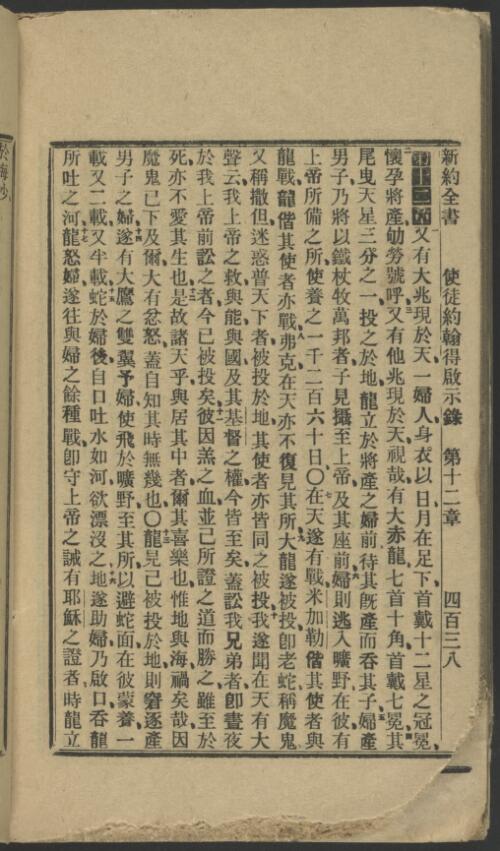 新約全書 使徒約翰得啟示錄 第十二章 四百三八
第十二章又有大兆現於天一婦人身衣以日月在足下首戴十二星之冠冕
二懷孕將產劬勞號呼三又有他兆現於天視哉有大赤龍七首十角首戴七冕四其
尾曳天星三分之一投之於地龍立於將產之婦前待其旣產而吞其子五婦產
男子乃將以鐵杖牧萬邦者子見攝至上帝及其座前六婦則逃入曠野在彼有
上帝所備之所使養之一千二百六十日〇七在天遂有戰米加勒偕其使者與
龍戰龍偕其使者亦戰八弗克在天亦不復見其所九大龍遂被投卽老蛇稱魔鬼
又稱撒但迷惑普天下者被投於地其使者亦皆同之被投十我遂聞在天有大
聲云我上帝之救與能與國及其基督之權今皆至矣蓋訟我兄弟者卽晝夜
於我上帝前訟之者今已被投矣十一彼因羔之血並己所證之道而勝之雖至於
死亦不愛其生也十二是故諸天乎與居其中者爾其喜樂也惟地與海禍矣哉因
魔鬼已下及爾大有忿怒蓋自知其時無幾也〇十三龍見己被投於地則窘逐產
男子之婦十四遂有大鷹之雙翼予婦使飛於曠野至其所以避蛇面在彼蒙養一
載又二載又半載十五蛇於婦後自口吐水如河欲漂沒之十六地遂助婦乃啟口吞龍
所吐之河十七龍怒婦遂往與婦之餘種戰卽守上帝之誡有耶穌之證者時龍立
於海沙